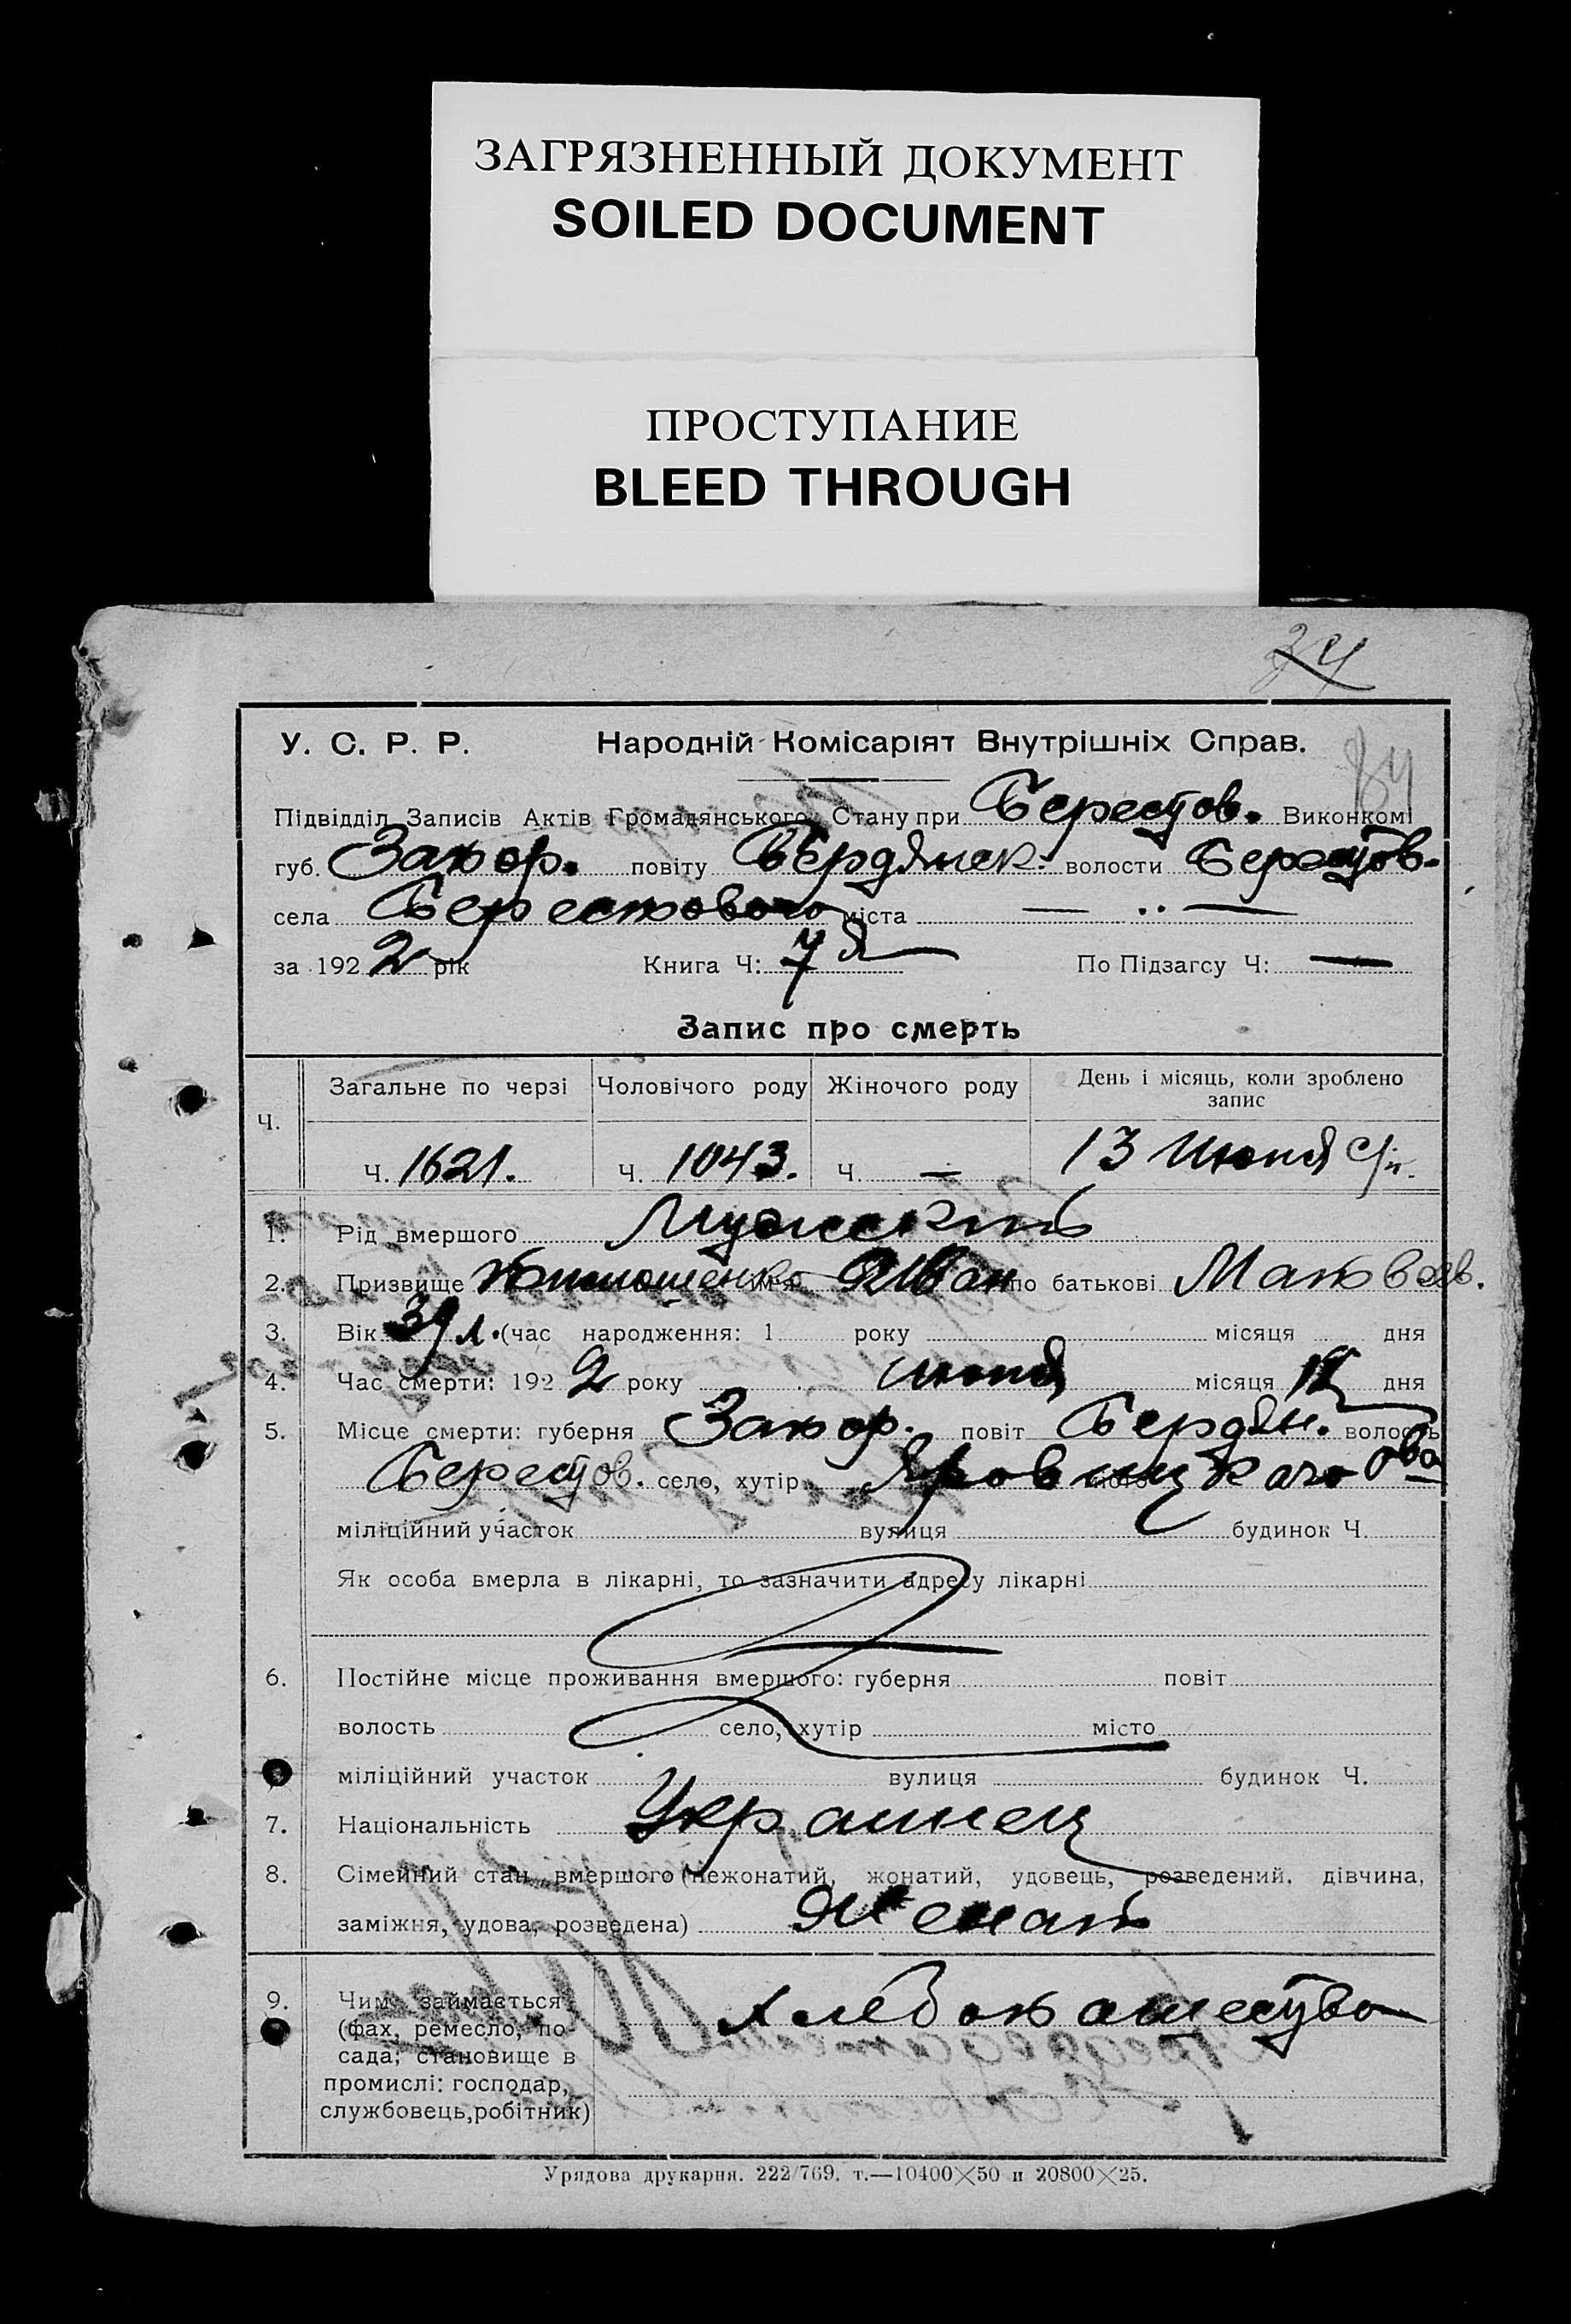 ЗАГРЯЗНЕННЫЙ ДОКУМЕНТ
SOILED DOCUMENT
ПРОСТУПАНИЕ
BLEED THROUGH
У. С. Р. Р. Народній Комісаріят Внутрішніх Справ.
Підвідділ Записів Актів Громадянського Стану при Берестов. Виконкомі
губ. Запор. повіту Бердянск. волости Берестов.
села Берестового міста —
за 1922 рік Книга Ч: 7я По Підзагсу Ч: —
Запис про смерть
Загальне по черзі Чоловічого роду Жіночого роду День і місяць, коли зроблено запис
Ч.
Ч. 1621. Ч. 1043. Ч. — 13 Июня с/г.
1. Рід вмершого Мужской
2. Призвище імя Иван по батькові Матвеев.
3. Вік 39 л. (час народження: 1 року місяця дня
4. Час смерти: 1922 року июня місяця дня
5. Місце смерти: губерня Запор. повіт Бердян. волость
Берестов. село, хутір
міліційний участок вулиця будинок Ч.
Як особа вмерла в лікарні, то зазначити адресу лікарні
6. Постійне місце проживання вмершого: губерня повіт
волость село, хутір місто
міліційний участок вулиця будинок Ч.
7. Національність Украинец
8. Сімейний стан вмершого (нежонатий, жонатий, удовець, розведений, дівчина,
заміжня, удова, розведена) Женат
9. Чим займається Хлебопашество
(фах, ремесло, по-
сада; становище в
промислі: господар,
службовець, робітник)
Урядова друкарня. 222/769. т.—10400×50 и 20800×25.